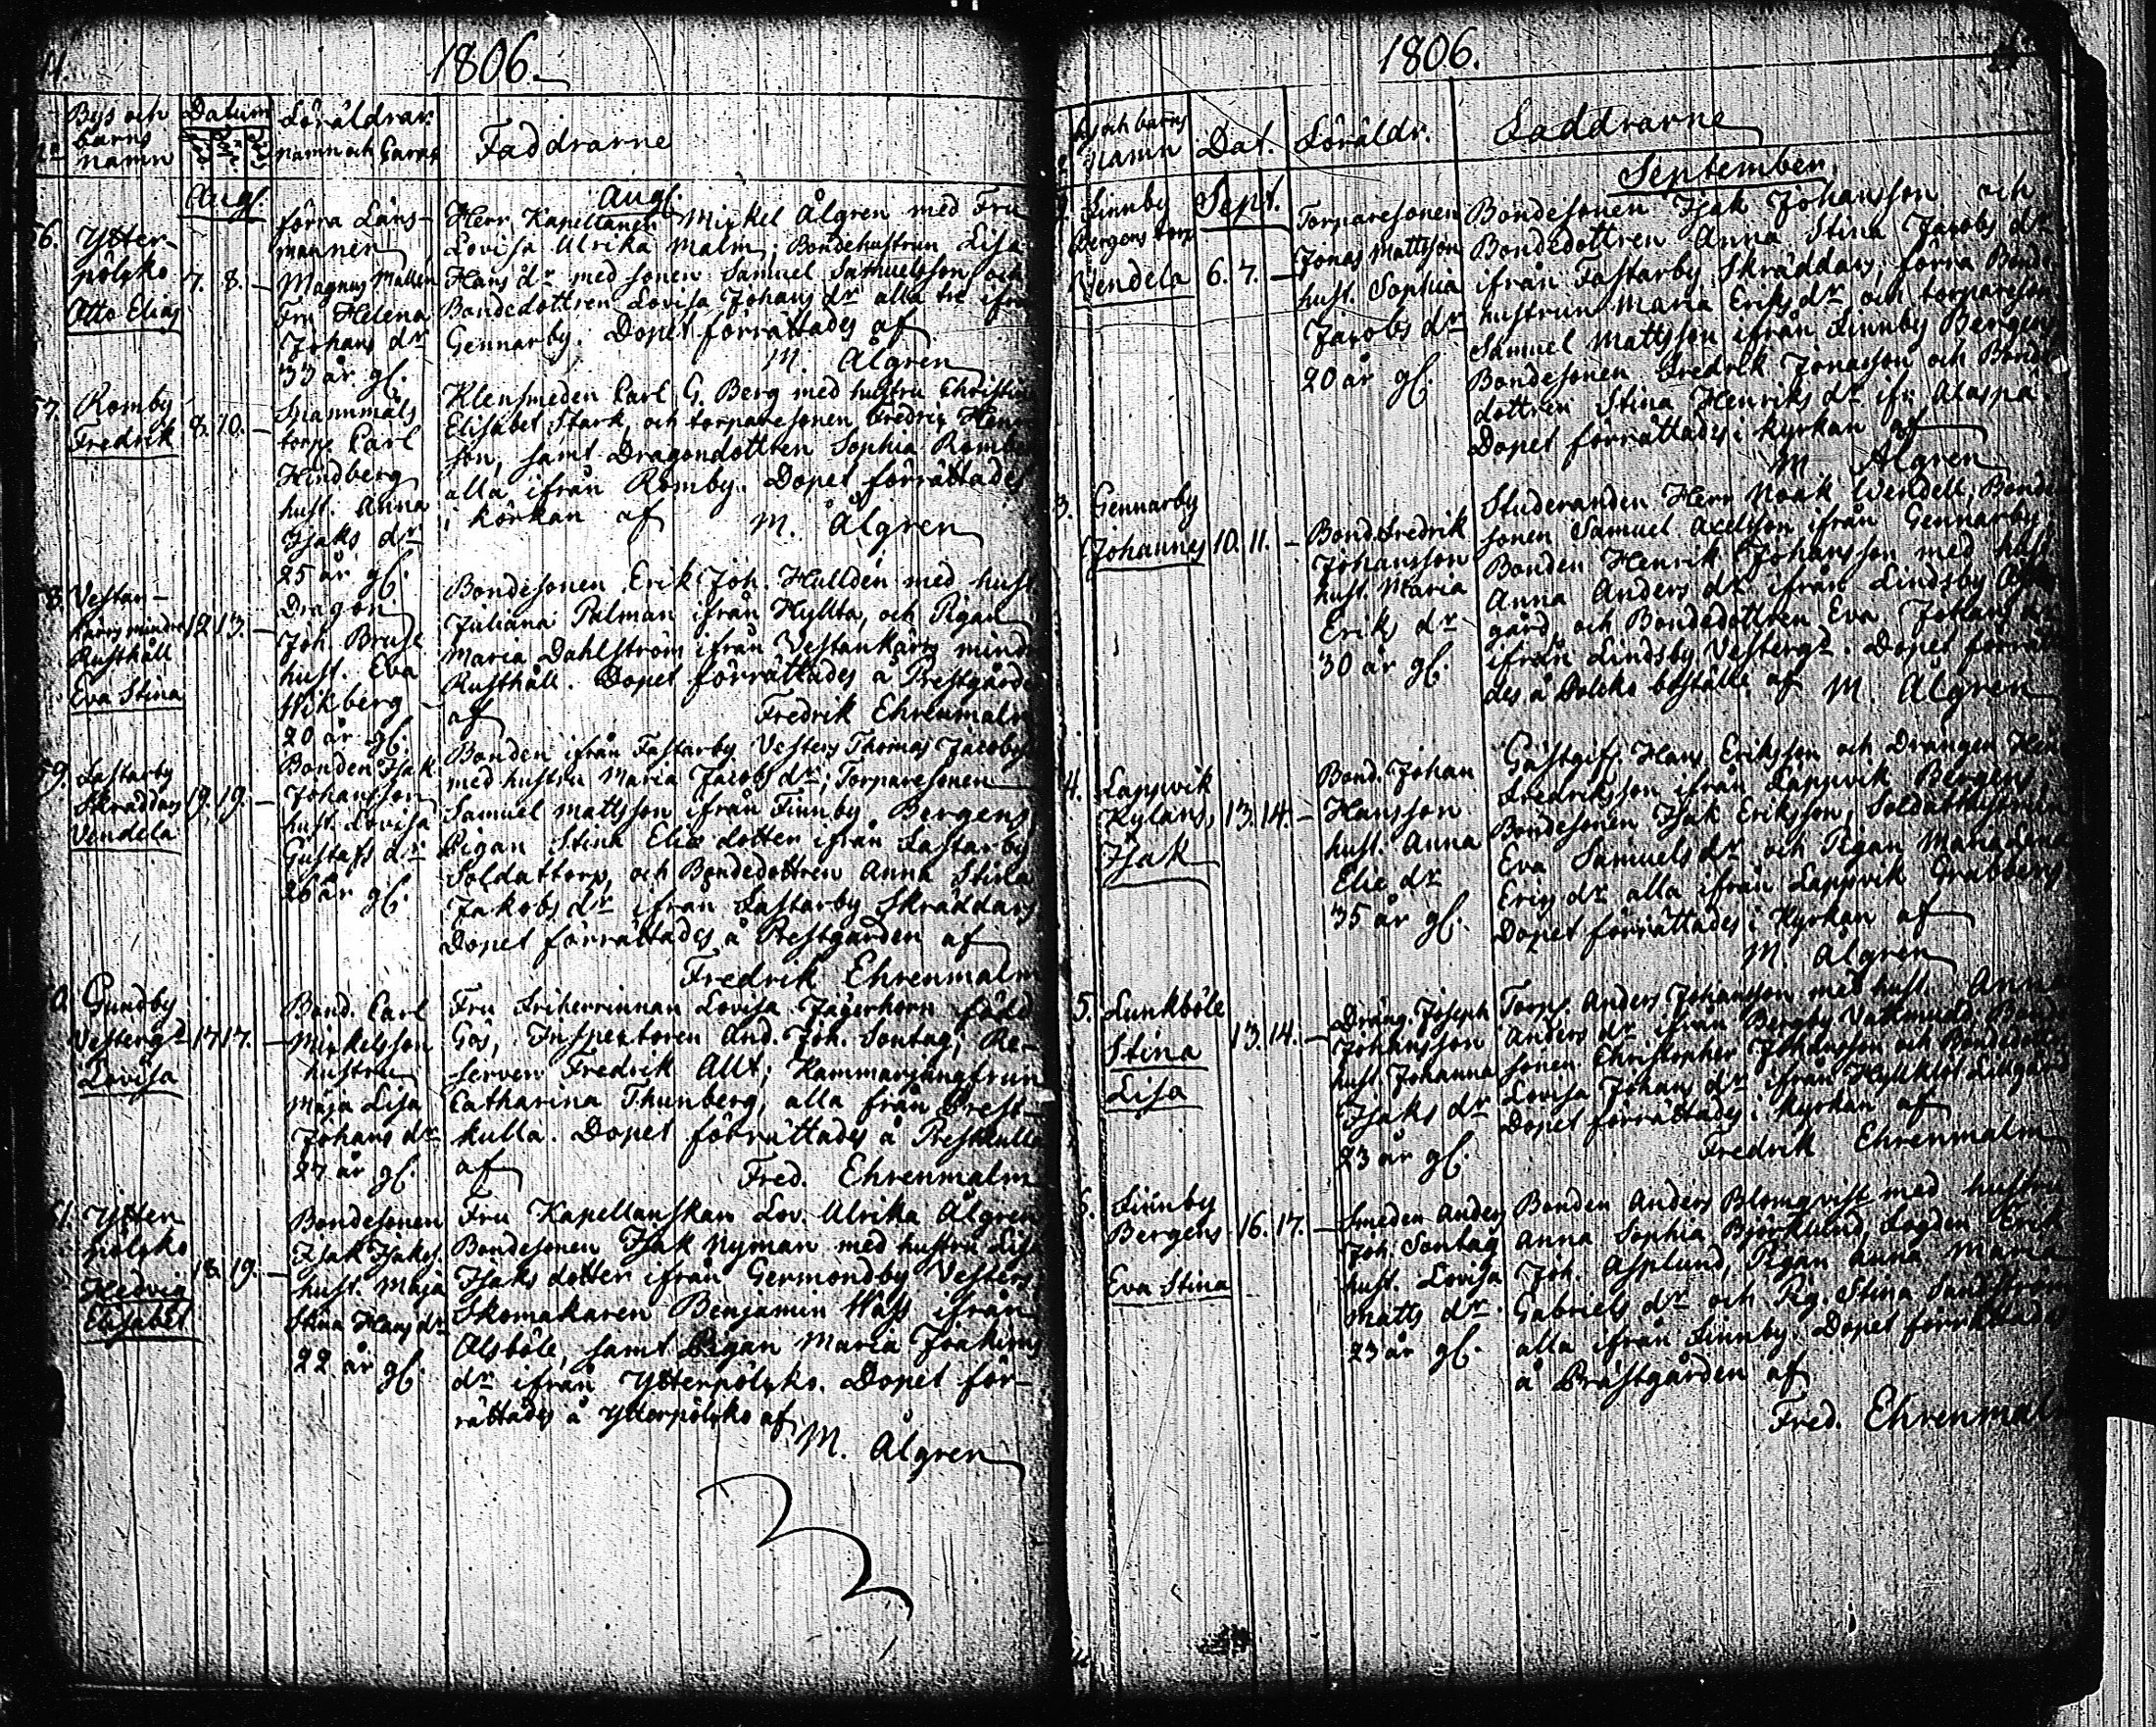 1806.
Bys och
barns
namn
Datum
Föräldrar:
namn och Caract
Faddrarne
Aug.
Aug.
6. Ytter-
pölsko
Otto Elias
7. 8. –
förra Läns-
mannen
Magnus Mallen
Fru Helena
Johans dr
33 år gl.
Herr Kapellanen Mickel Ålgren med Fru
Lovisa Ulrika Malm; Bondehustrun Lisa
Hans dr med sonen Samuel Samuelsson och
Bondedottren Lovisa Johans dr alla tre ifrån
Gennarby. Dopet förrättades af
M. Ålgren
7. Romby
Fredrik
8. 10. –
torp. Carl
Hindberg
hust. Anna
Isaks dr
25 år gl.
Klensmeden Carl G. Berg med hustru Christin
Elisabet Stark, och torparesonen Fredric Hen
son, samt Dragondottren Sophia Romb
alla ifrån Romby. Dopet förrättades
i körkan af M. Ålgren
8. Vestan-
kärrs mindre
Rusthåll
Eva Stina
12. 13. –
Dragon
Joh. Bruse
hust. Eva
Wikberg
20 år gl.
Bondesonen Erik Joh. Hulldén med hust.
Juliana Palman ifrån Hyllta, och Pigan
Maria Dahlström ifrån Vestankärrs mind
Rusthåll. Dopet förrättades å Prestgårde
af Fredrik Ehrenmalm
9. Fastarby
Skräddars
Vendela
19. 19. –
Bonden Isak
Johansson
hust. Lovisa
Gustafs dr
26 år gl.
Bonden ifrån Fastarby Vesters Thomas Jacobss
med hustru Maria Jacobs dr; Torparesonen
Samuel Mattsson ifrån Finnby Bergens
Pigan Stina Elie dotter ifrån Fastarby
Soldattorp, och Bondedottren Anna Stina
Jakobs dr ifrån Fastarby Skräddars
Dopet förrättades å Prestgården af
Fredrik Ehrenmalm
0. Gundby
Vestergd
Lovisa
17. 17. –
Bond. Carl
Mickelsson
hustru
Maja Lisa
Johans dr
27 år gl.
Fru Friherrinnan Lovisa Jägerhorn född
Gös, Inspectoren And. Joh. Sontag; Re-
serven Fredrik Allt; Kammarjungfrun
Catharina Thunberg, alla från Prest-
kulla. Dopet förrättades å Prestkulla
af Fred. Ehrenmalm
1. Ytter
pölsko
Hedvig
Elisabet
18. 19. –
Bondesonen
Isak Isakss.
hust. Maja
Stina Hans dr
22 år gl.
Fru Kapellanskan Lov. Ulrika Ålgren
Bondesonen Isak Nyman med hustru Lisa
Isaks dotter ifrån Germondby Vesters;
Skomakaren Benjamin Wass ifrån
Olsböle, samt Pigan Maria Joakims
dr ifrån Ytterpölsko. Dopet för-
rättades å Ytterpölsko af
M. Ålgren
1806.
by och barns
namn
Dat.
Föräldr.
Faddrarne
September
Sept.
Finnby
Bergens torp
Vendela
6. 7. –
Torparesonen
Jonas Mattsson
hust. Sophia
Jacobs dr
20 år gl.
Bondesonen Isak Johansson och
Bondedottren Anna Stina Jacobs dr
ifrån Fastarby Skräddars; förra Bonde
hustrun Maria Eriks dr och torpareson
Samuel Mattsson ifrån Finnby Bergens
Bondesonen Fredrik Jonasson och Bonde
dottren Stina Henriks dr ifr. Alaspä.
Dopet förrättades i kyrkan af
M. Ålgren
3. Gennarby
Johannes
10. 11. –
Bond. Fredrik
Johansson
hust. Maria
Eriks dr
30 år gl.
Studeranden Herr Noak Wendell; Bonde
sonen Samuel Axelsson ifrån Gennarby
Bonden Henrik Johansson med hust.
Anna Anders dr ifrån Lindsby
gård, och Bondedottren Eva Johans dr
ifrån Lindsby Vestergd. Dopet förrät
des å boställe af M. Ålgren
4. Lappvik
Kylans,
Isak
13. 14. –
Bond. Johan
Hansson
hust. Anna
Elie dr
35 år gl.
Gästgif. Hans Eriksson och Drängen Hen
Fredriksson ifrån Lappvik Bergens
Bondesonen Isak Eriksson, Soldathustrun
Eva Samuels dr och Pigan Maria Lena
Erics dr alla ifrån Lappvik Grabbens
Dopet förrättades i Kyrkan af
M. Ålgren
5. Lunkböle
Stina
Lisa
13. 14. –
Dräng. Joseph
Johansson
hust. Johanna
Isaks dr
23 år gl.
Torp. Anders Johansson med hust. Anna
Anders dr ifrån Bergby Bonde
sonen Christopher Johansson och Bondedottr
Lovisa Johans dr ifrån Lillgård
Dopet förrättades i kyrkan af
Fredrik Ehrenmalm
6. Finnby
Bergens
Eva Stina
16. 17. –
Smeden Anders
Joh. Sontag
hust. Lovisa
Matts dr
23 år gl.
Bonden Anders Blomqvist med hustru
Anna Sophia Björklund, Logden Erik
Joh. Asplund, Pigan Anna Maria
Gabriels dr och Pig. Stina Sundström
alla ifrån Finnby. Dopet förrättades
å Prästgården af
Fred. Ehrenmalm